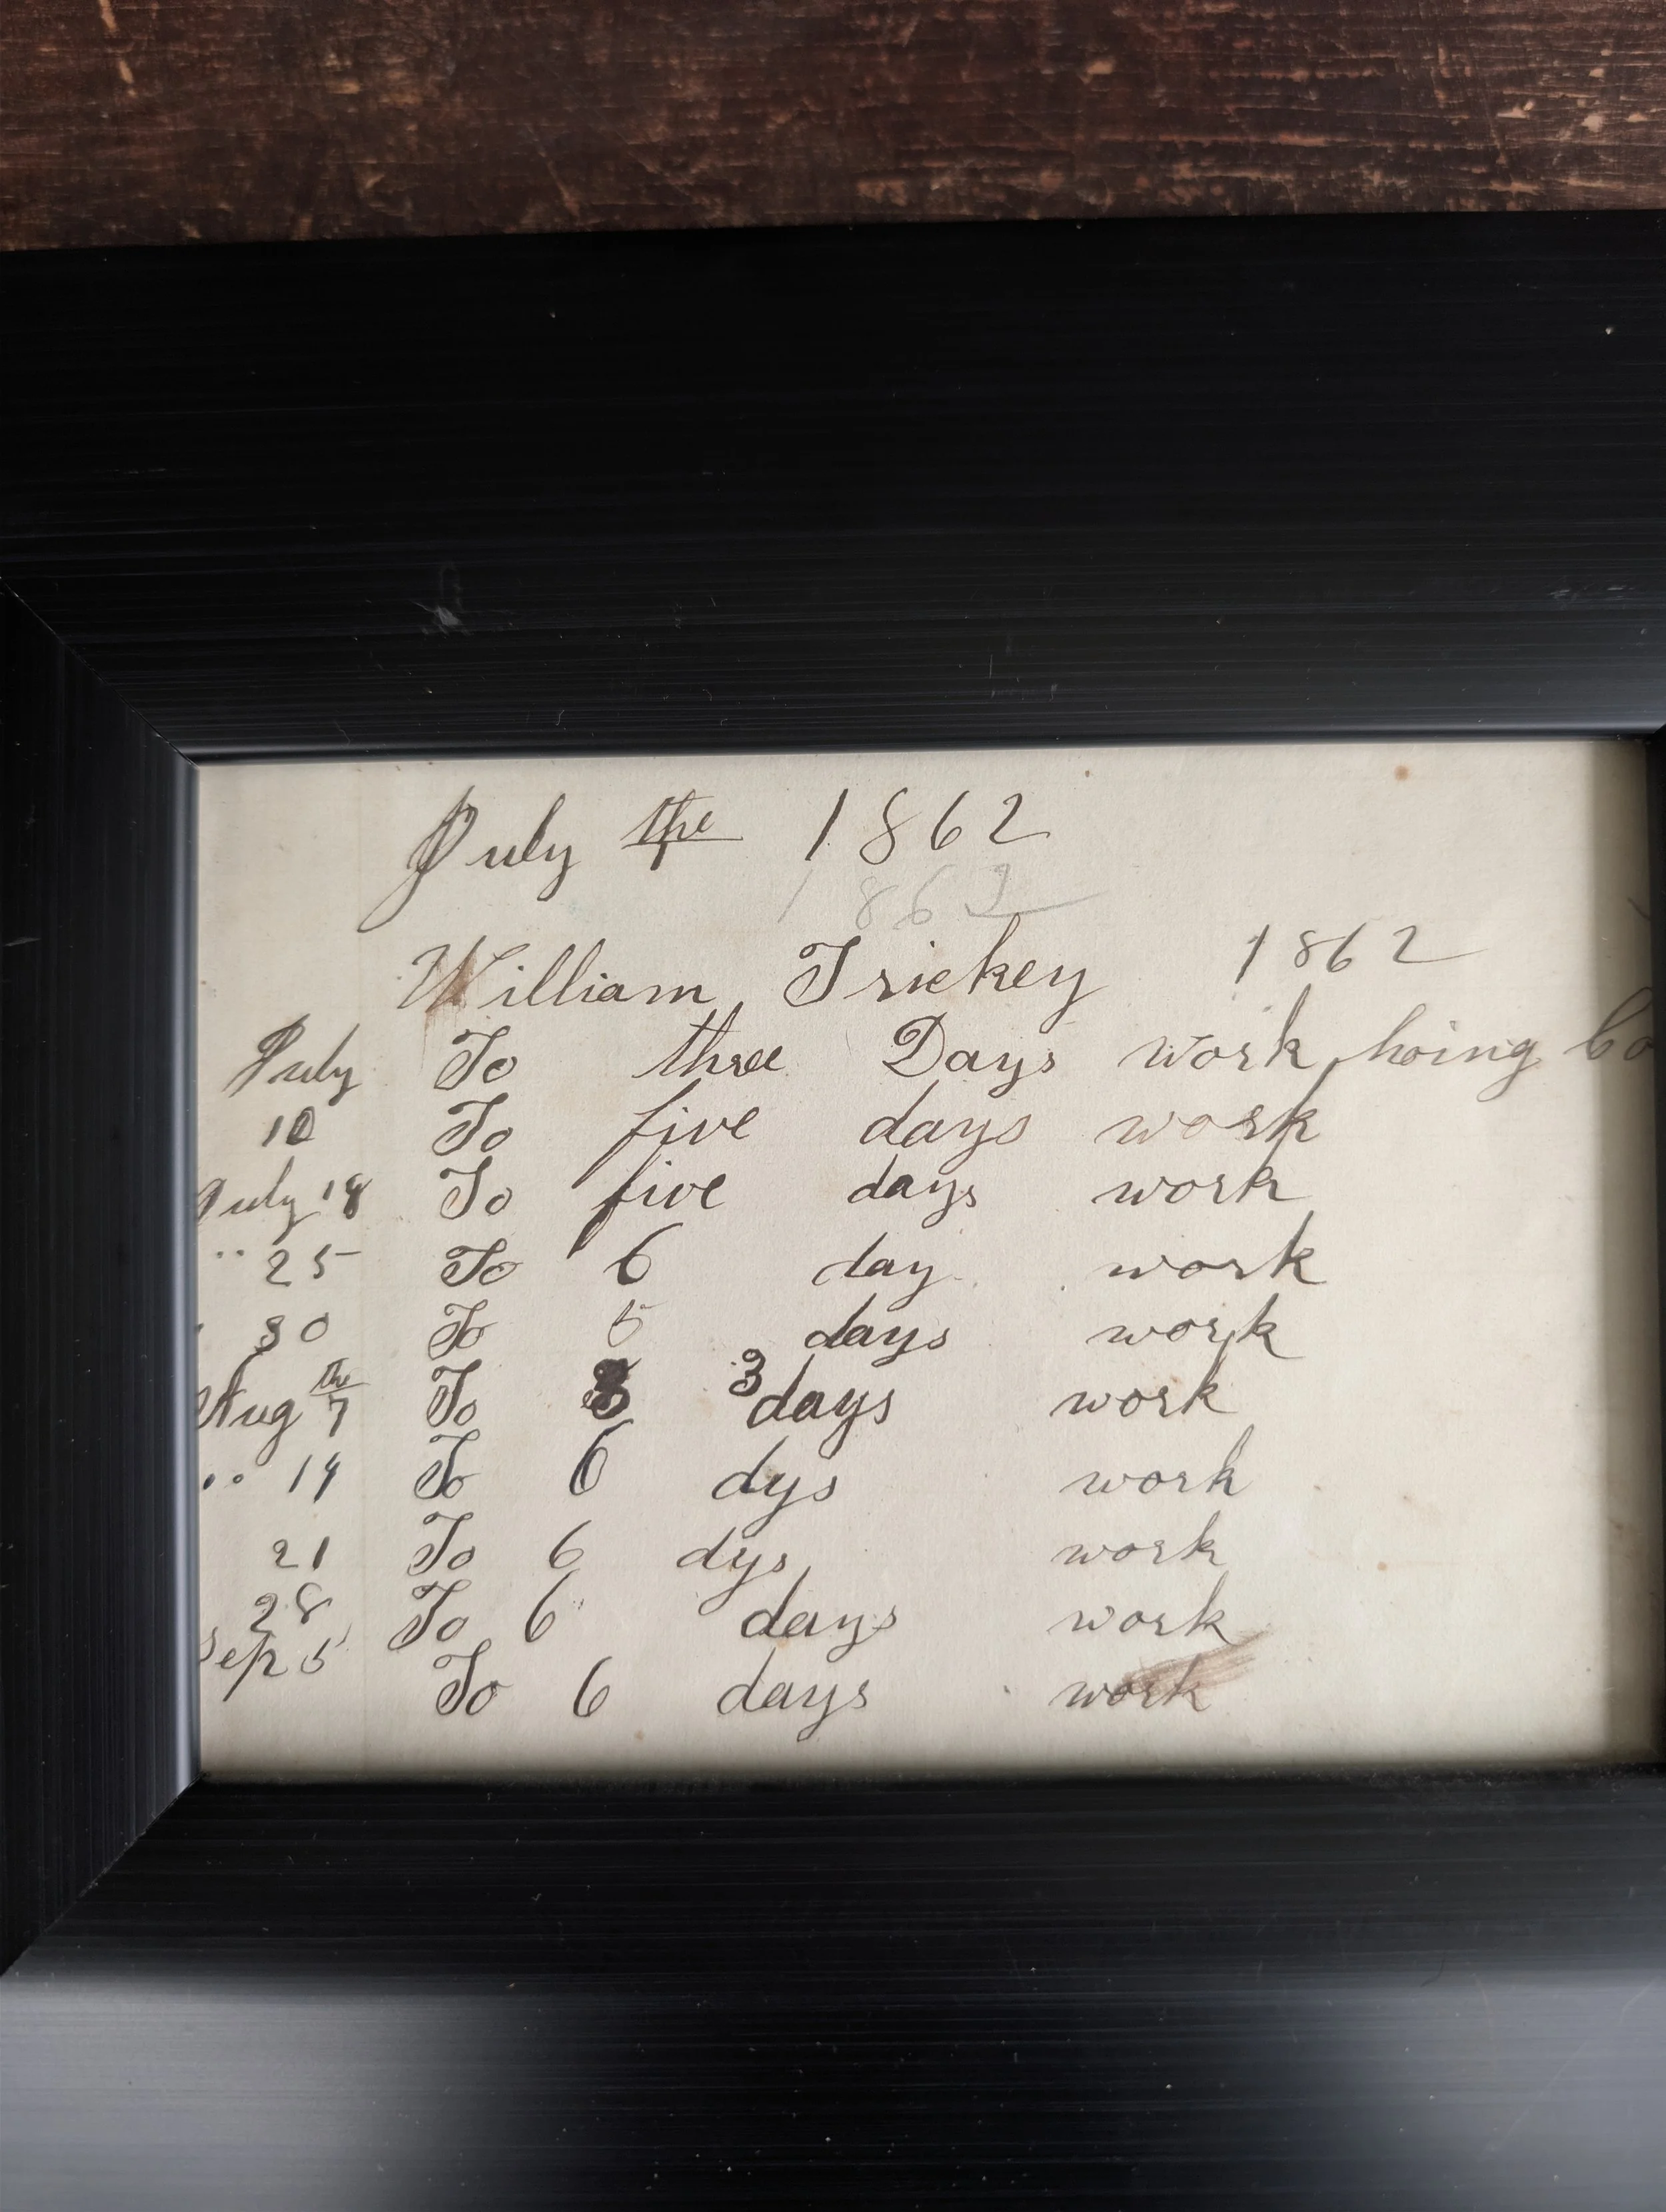 July the 1862
1862
William Trickey 1862
July To three Days work hoing Co
10 To five days work
July 18 To five days work
" 25 To 6 day work
30 To 5 days work
Aug the 7 To 3 days work
" 14 To 6 dys work
21 To 6 dys work
28 To 6 days work
Sep 5 To 6 days work